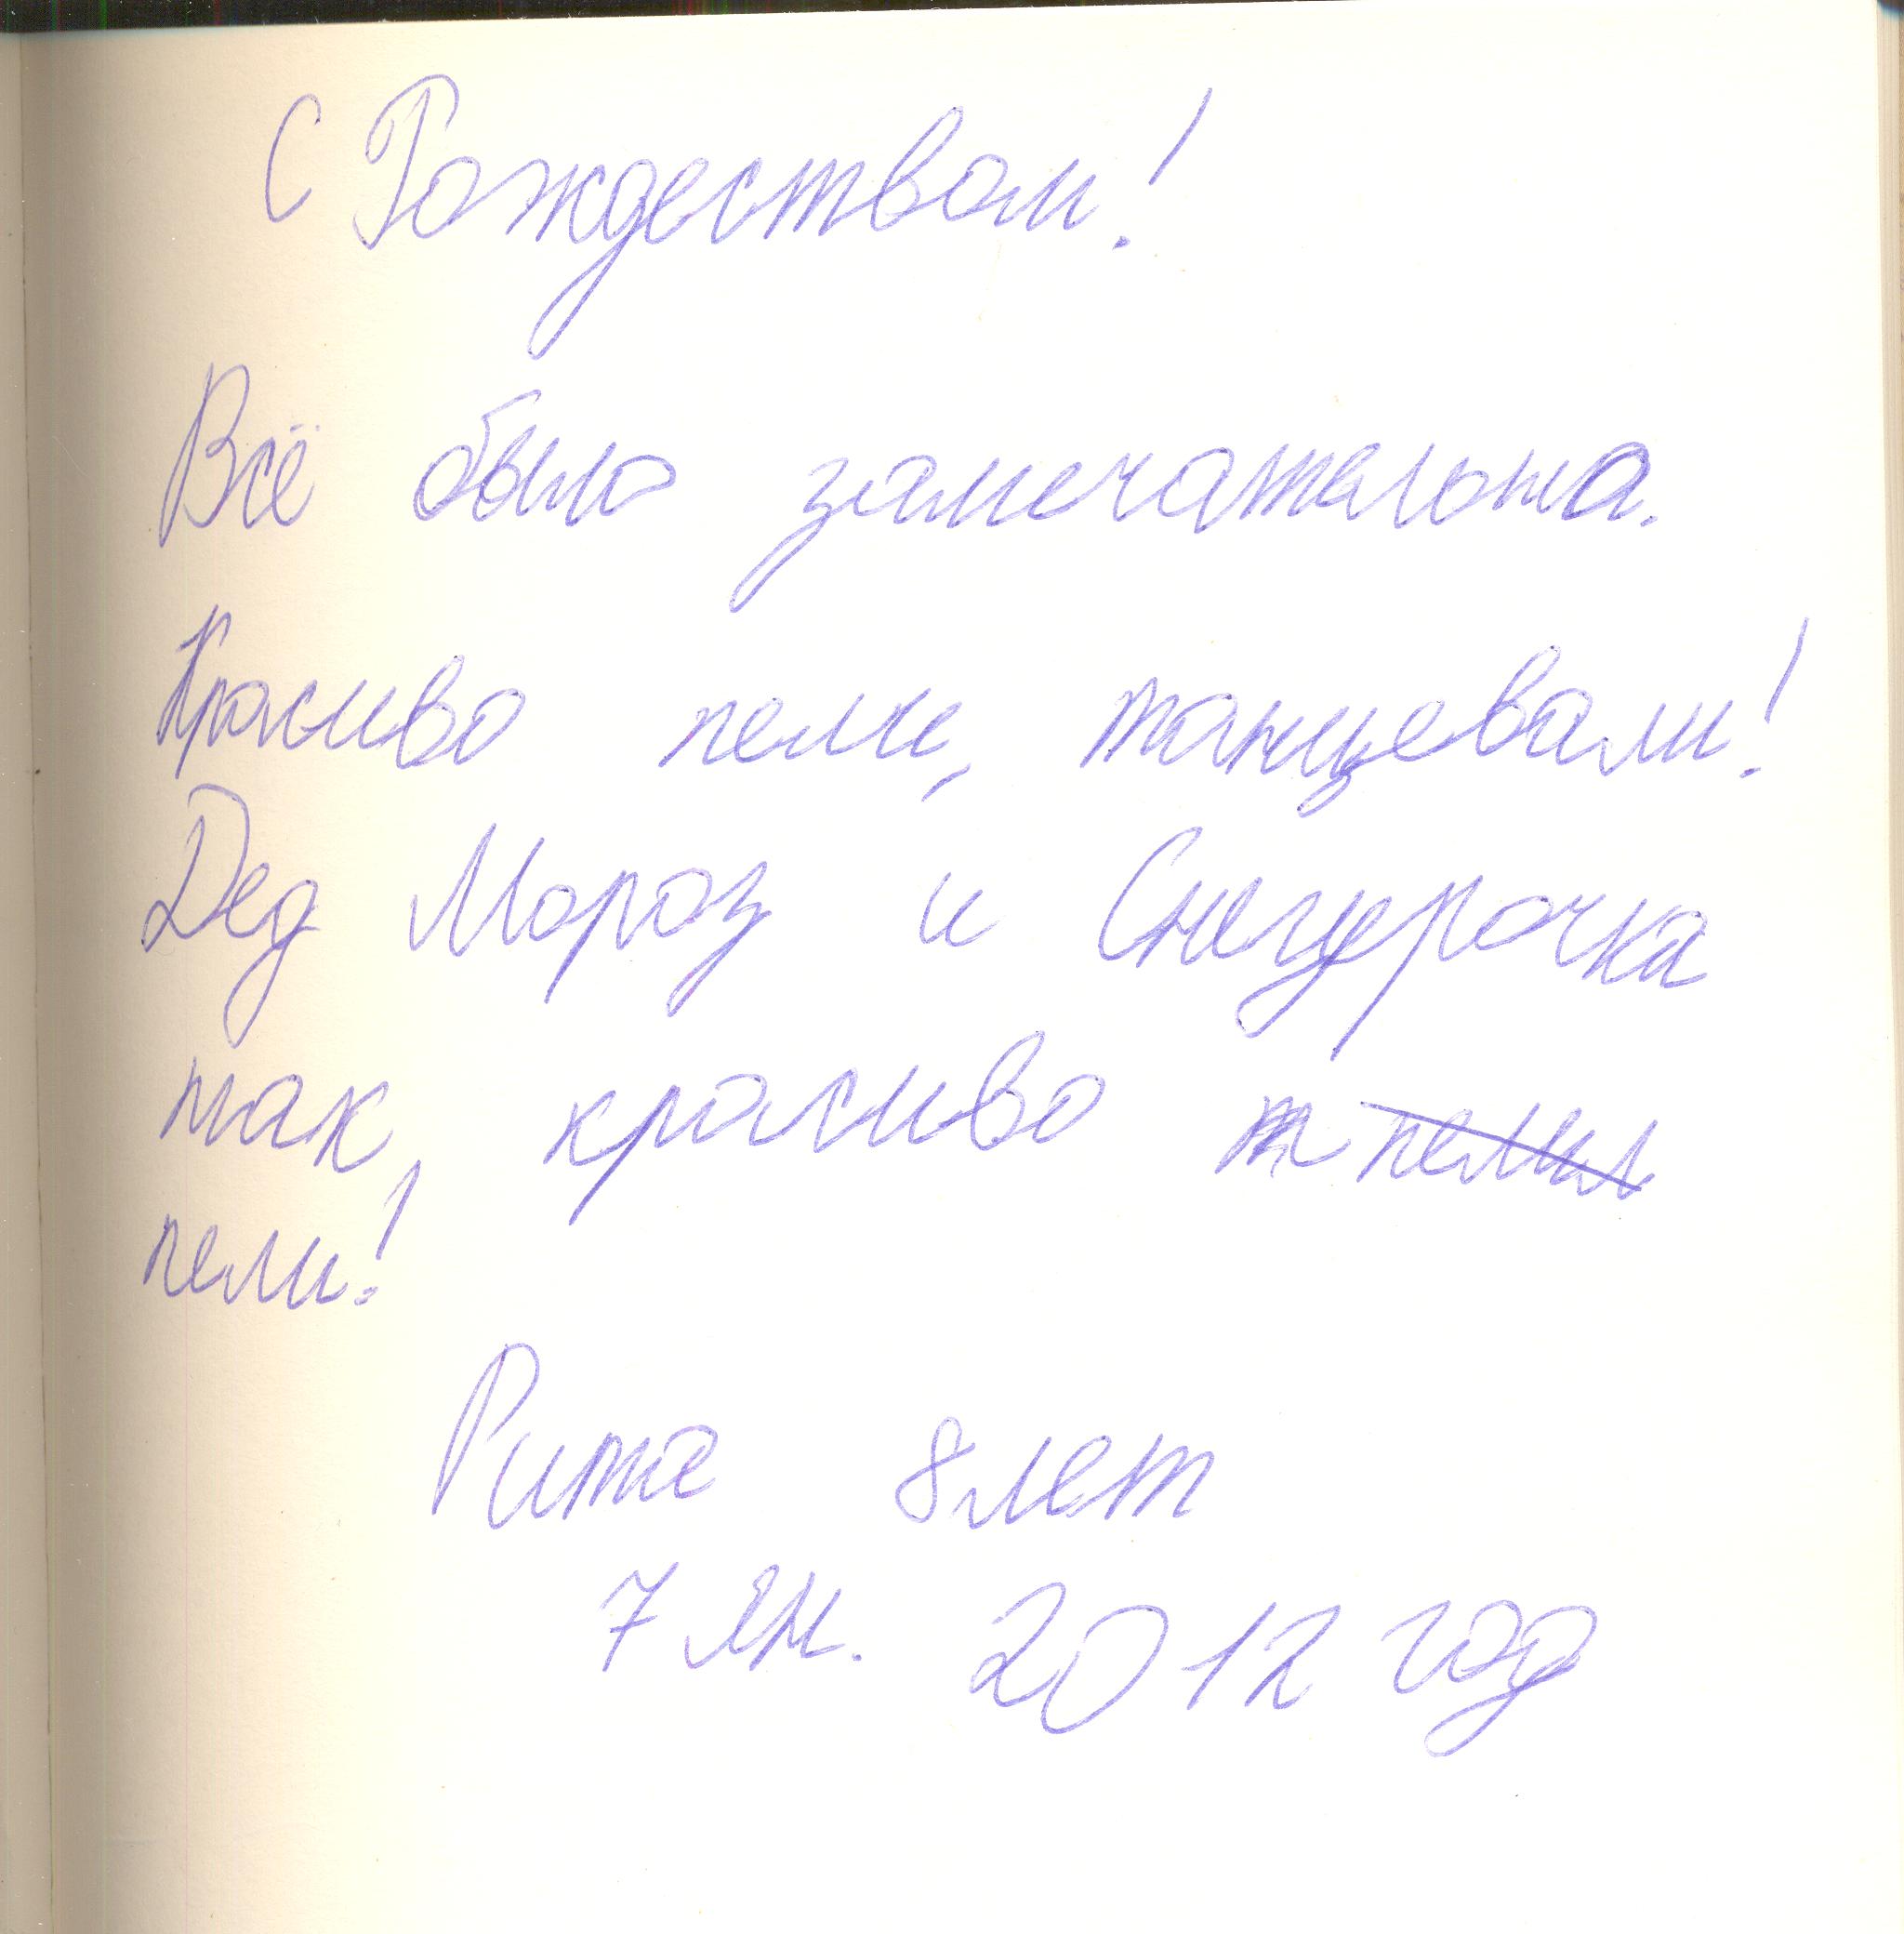 С Рождеством!
Всё было замечательно.
Красиво пели, танцевали!
Дед Мороз и Снегурочка
так, красиво
пели!
Рита 8 лет
7 ян. 2012 год